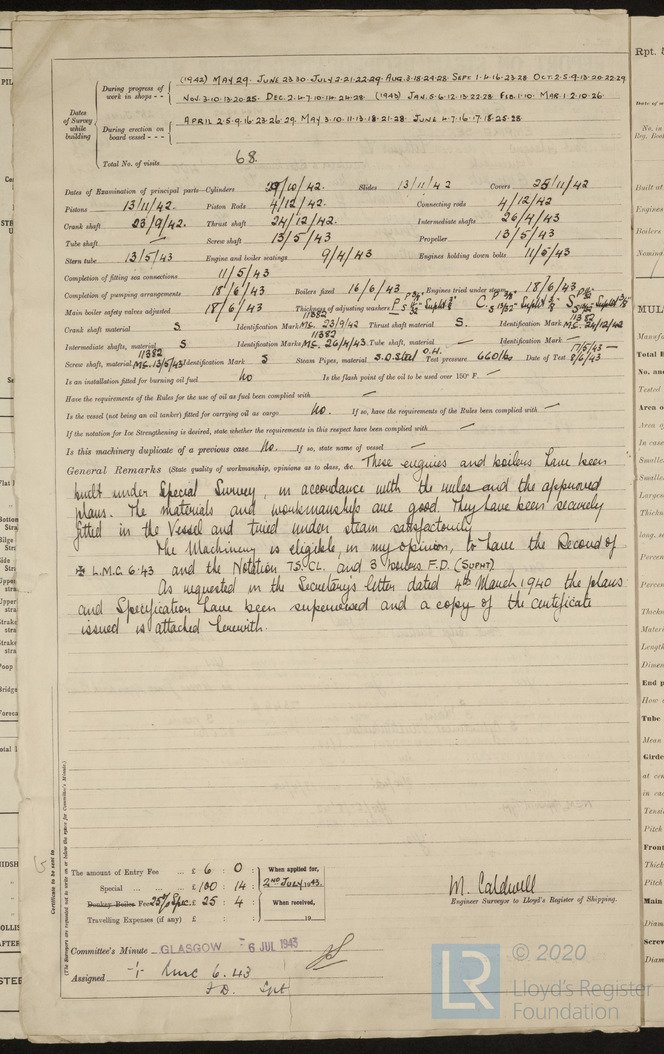 Rpt. 5
During progress of work in shops - - (1942) MAY 29. JUNE 23 30. JULY 2. 21. 22. 29. AUG. 3. 18. 24. 28. SEPT 1. 4. 16. 23. 28 OCT. 2. 5. 9. 13. 20. 22. 29
NOV. 3. 10. 13. 20. 25. DEC. 2. 4. 7. 10. 14. 24. 28. (1943) JAN. 5. 6. 12. 13. 22. 28 FEB. 1. 10. MAR. 1. 2. 10. 26.
Dates of Survey while building
During erection on board vessel - - - APRIL 2. 5. 9. 16. 23. 26. 29. MAY 3. 10. 11. 13. 18. 21. 28. JUNE 4. 7. 16. 17. 18. 25. 28
Total No. of visits 68.
Dates of Examination of principal parts—Cylinders 29/10/42. Slides 13/11/42 Covers 25/11/42
Pistons 13/11/42. Piston Rods 4/12/42. Connecting rods 4/12/42
Crank shaft 23/9/42. Thrust shaft 24/12/42. Intermediate shafts 26/4/43
Tube shaft — Screw shaft 13/5/43 Propeller 13/5/43
Stern tube 13/5/43 Engine and boiler seatings 9/4/43 Engines holding down bolts 11/5/43
Completion of fitting sea connections 11/5/43
Completion of pumping arrangements 18/6/43 Boilers fixed 16/6/43 Engines tried under steam 18/6/43
Main boiler safety valves adjusted 18/6/43 Thickness of adjusting washers
Crank shaft material S. Identification Mark 11382 MC. 23/9/42 Thrust shaft material S. Identification Mark 11382 MC. 24/12/42
Intermediate shafts, material S Identification Marks 11382 MC. 26/4/43. Tube shaft, material — Identification Mark —
Screw shaft, material 11382 MC. 13/5/43 Identification Mark S Steam Pipes, material S.D. Steel O.H. Test pressure 660 lb. Date of Test 17/5/43 — 8/6/43
Is an installation fitted for burning oil fuel No Is the flash point of the oil to be used over 150° F. —
Have the requirements of the Rules for the use of oil as fuel been complied with —
Is the vessel (not being an oil tanker) fitted for carrying oil as cargo No. If so, have the requirements of the Rules been complied with —
If the notation for Ice Strengthening is desired, state whether the requirements in this respect have been complied with —
Is this machinery duplicate of a previous case No. If so, state name of vessel —
General Remarks (State quality of workmanship, opinions as to class, &c. These engines and boilers have been
built under Special Survey, in accordance with the rules and the approved
plans. The materials and workmanship are good. They have been securely
fitted in the Vessel and tried under steam satisfactorily
The Machinery is eligible, in my opinion, to have the Record of
✠ L.M.C. 6.43 and the Notation T.S. CL. and 3 boilers F.D. (SUPHT)
As requested in the Secretary's letter dated 4th March 1940 the plans
and Specification have been supervised and a copy of the certificate
issued is attached herewith.
Certificate to be sent to
(The Surveyors are requested not to write on or below the space for Committee's Minute.)
The amount of Entry Fee ... £ 6 : 0 :
Special ... ... £ 100 : 14 :
Donkey Boiler Fee 25% Spec. £ 25 : 4 :
Travelling Expenses (if any) £ : :
When applied for, 2ND JULY 1943.
When received, 19
M. Caldwell
Engineer Surveyor to Lloyd's Register of Shipping.
Committee's Minute GLASGOW 6 JUL 1943
Assigned + LMC 6.43
F.D. Spt
© 2020
LR
Lloyd's Register
Foundation